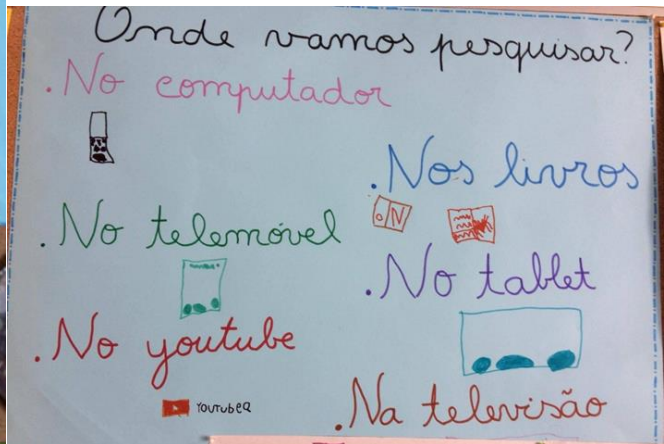 Onde vamos pesquisar?
. No computador
. Nos livros
. N
. No telemóvel
. No tablet
. No youtube
YOUTUBEA
. Na televisão